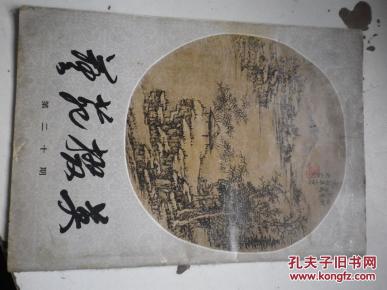 艺苑掇英
第二十期
孔夫子旧书网
www.kongfz.com